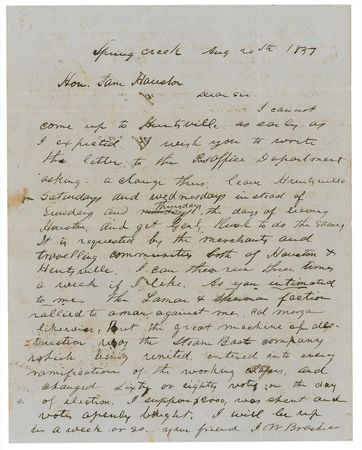 Spring Creek Aug 20th 1857
Hon. Sam Houston
Dear Sir
I cannot
come up to Huntsville as early as
I expected I wish you to write
the letter to the Post Office Department
asking a change thus, leave Huntsville
on Saturdays and Wednesdays instead of
Tuesdays and Thursday the days of leaving
Houston, and get Genl Rusk to do the same,
It is requested by the merchants and
travelling communities both of Houston &
Huntsville. I can then run three times
a week if I like. As you intimated
to me. The Lamar & Sherman faction
rallied to a man against me, Col Morgan
likewise, But the great machine of des-
truction was the Steam Boat company
which being united, entered into every
ramification of the working classes, and
changed sixty or eighty votes on the day
of election. I suppose 2000, was spent and
votes openly bought, I will be up
in a week or so. your friend J W Brashear